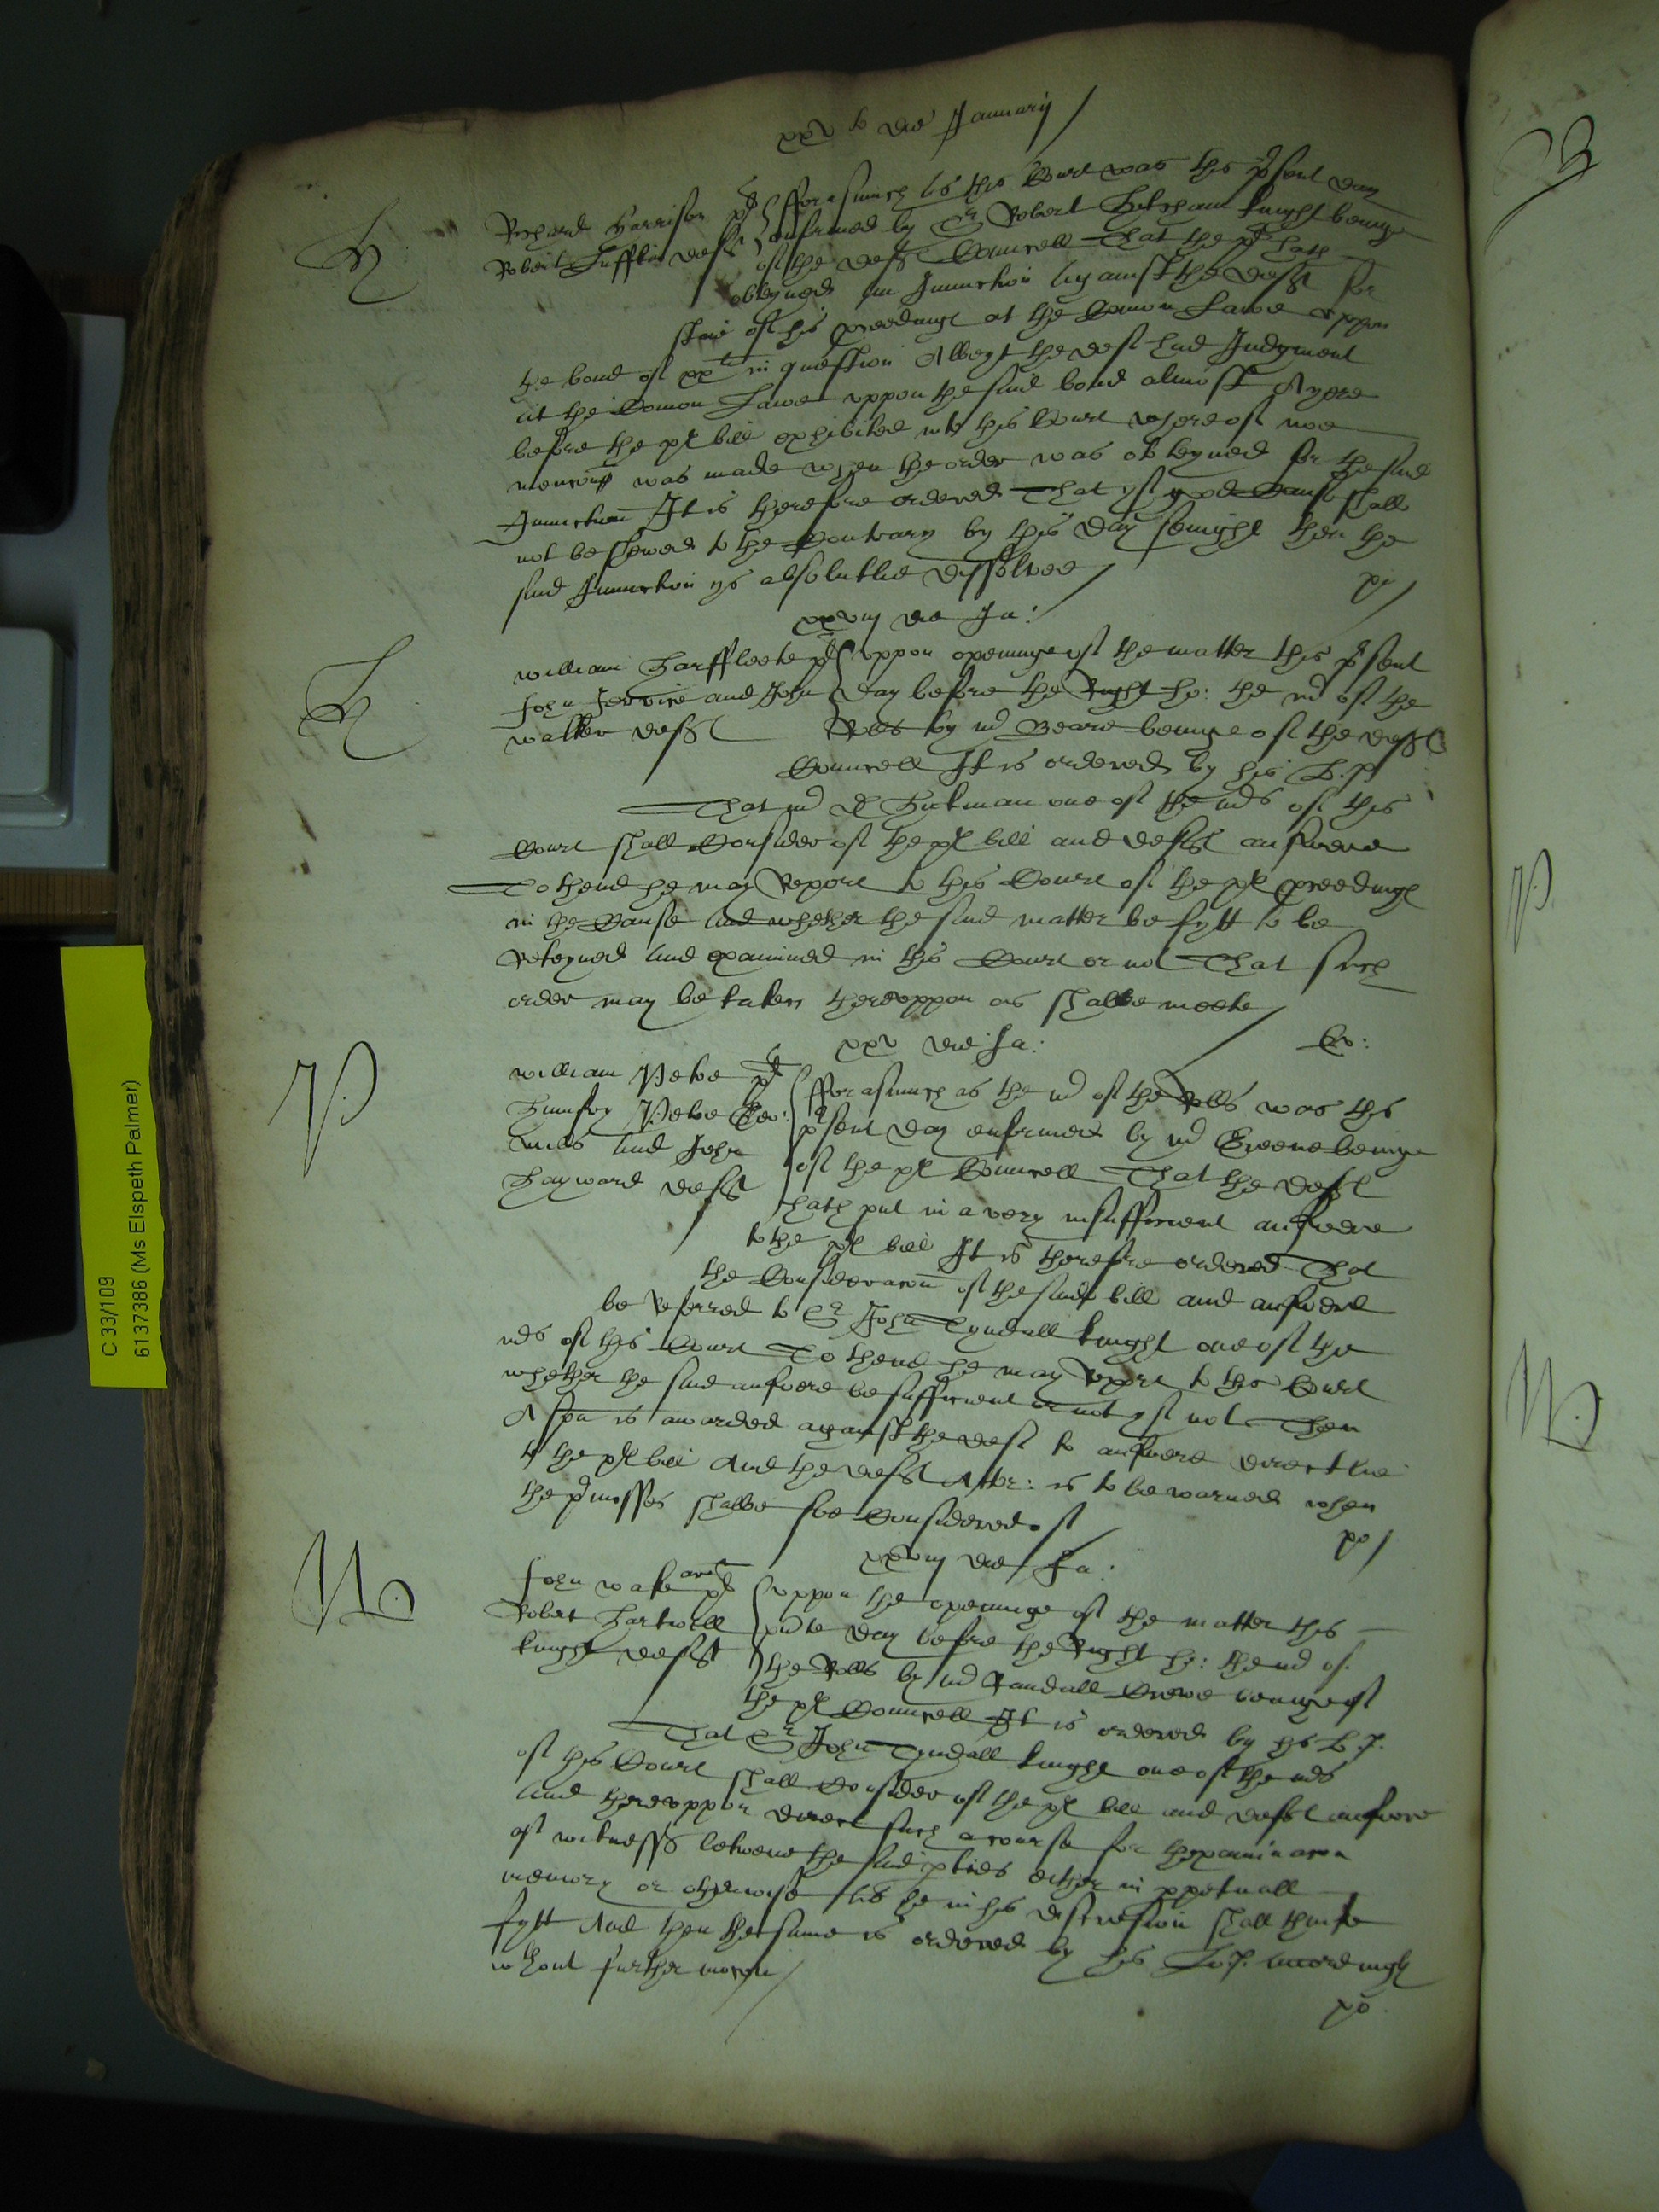 xxv to die Januarij
H
Richard Harrison pl fforasmuch as this Court was this pnte day
Robert Suffkin deft enformed by Sr Robert Hitcham knight beinge
of the defts Councell That the pl hath
obteyned an Iniunction against the deft for
staie of his proceedinges at the Comon Lawe uppon
the bond of xxli in question Albeyt the deft had Iudgment
at the Comon Lawe uppon the said bond almost A yere
before the pl bill exhibited into this Court whereof noe
mencion was made when the order was obteyned for the said
Iniunction It is therefore ordered That yf good Cause shall
not be shewed to the Contrary by this day sevnight then the
said Iniunction ys absolutlie dissolved
po
xxviij die Ja:
H
William Harffleete pl uppon openinge of the matter this psent
John Jervice and John day before the Right ho: the mr of the
Walker defts Rolls by mr Beare beinge of the defts
Councell It is ordered by his L.p
That mr D Hickman one of the mrs of this
Court shall Consider of the pl bill and defts answere
To thend he may Report to this Court of the pl proceedinges
in the Cause and whether the said matter be fytt to be
Reteyned and examined in this Court or not That such
order may be taken thereuppon as shalbe meete
xxv die Ja:
P
William Peter pl fforasmuch as the mr of the Rolls was this
Humfry Peter Geo: psent day enformed by mr Greene beinge
Mills and John of the pl Councell That the defts
Hayward defts hath put in a very insufficient answere
to the pl bill It is therefore ordered That
the Consideracion of the said bill and answere
be Referred to Sr John Tyndall knight one of the
mrs of this Court To thend he may Report to this Court
whether the said answere be sufficient or not yf not Then
A spa is awarded against the deft to answere directlie
to the pl bill And the defts Attor: is to be warned when
the pmisses shalbe soe Considered of
po
xxviij die Ja:
W
John Wake ar pl uppon the openinge of the matter this
Robert Hartwell pnte day before the Right ho: the mr of
knight deft the Rolls by mr Randall Crewe beinge of
the pl Councell It is ordered by his L.p.
That Sr John Tyndall knight one of the mrs
of this Court shall Consider of the pl bill and defts answere
and thereuppon direct such a course for thexaminacon
of witnesses betwene the said pties either in ppetuall
memory or otherwise as he in his discresion shall thinke
fytt And then the same is ordered by his Lo.p. accordingly
wthout further mocon
po
C 33/109
61373​86 (Ms Elspeth Palmer)